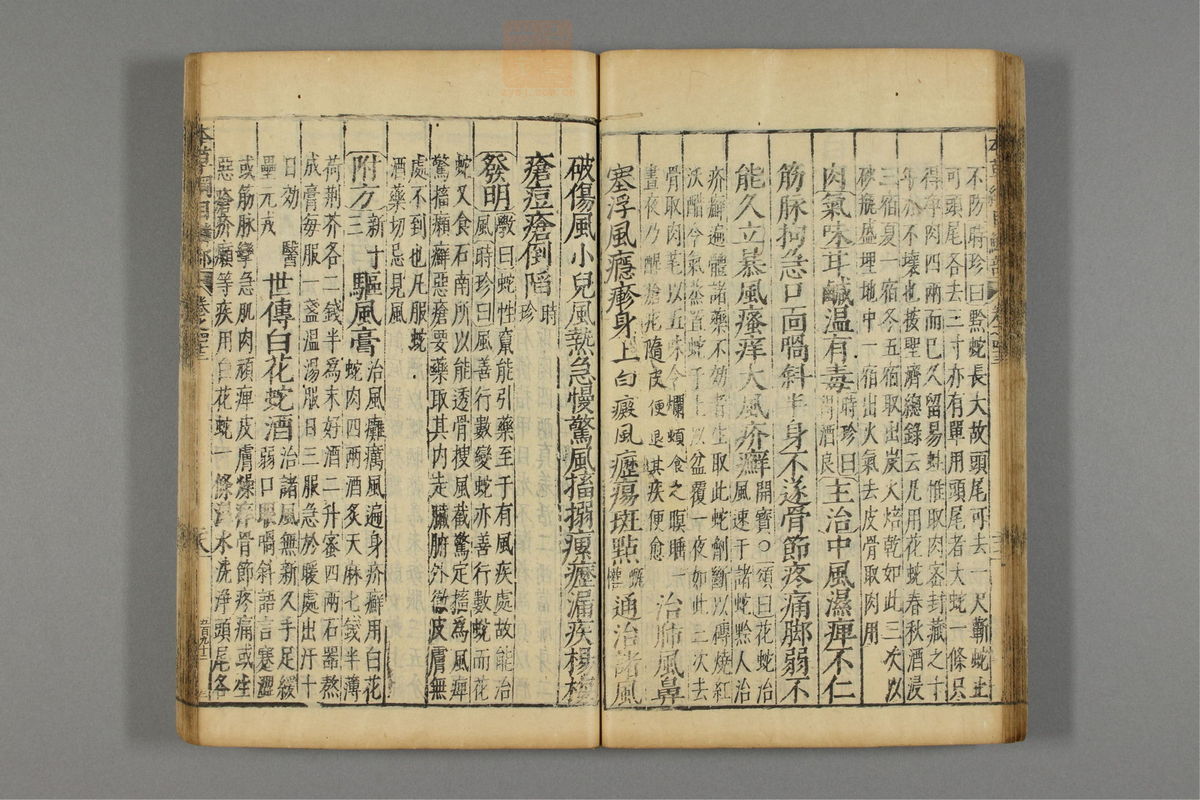 不防時珍曰黔蛇長大故頭尾可去一尺蘄蛇止
可頭尾各去三寸亦有單用頭尾者大蛇一條只
得淨肉四兩而已久留易蛀惟取肉密封藏之十
年亦不壞也按聖濟總錄云凡用花蛇春秋酒浸
三宿夏一宿冬五宿取出炭火焙乾如此三次以
砂瓶盛埋地中一宿出火氣去皮骨取肉用
肉氣味甘鹹溫有毒時珍曰得酒良主治中風濕痺不仁
筋脉拘急口面喎斜半身不遂骨節疼痛脚弱不
能久立暴風瘙痒大風疥癬開寶○頌曰花蛇治風速于諸蛇黔人治
疥癬遍體諸藥不効者生取此蛇劑斷以磚燒紅
沃醋令氣蒸置蛇于上以盆覆一夜如此三次去
骨取肉芼以五味令爛頓食之瞑眠一
晝夜乃醒瘡疕隨皮便退其疾便愈治肺風鼻
塞浮風癮疹身上白癜風癧瘍斑點甄權通治諸風
破傷風小兒風熱急慢驚風搐搦瘰癧漏疾楊梅
瘡痘瘡倒陷時珍
發明斆曰蛇性竄能引藥至于有風疾處故能治風時珍曰風善行數變蛇亦善行數蛻而花
蛇又食石南所以能透骨搜風截驚定搐為風痺
驚搐癩癬惡瘡要藥取其内走臟腑外徹皮膚無
處不到也凡服蛇
酒藥切忌見風
附方新三寸驅風膏治風癱癘風遍身疥癬用白花蛇肉四兩酒炙天麻七錢半薄
荷荆芥各二錢半為末好酒二升蜜四兩石器熬
成膏每服一盞溫湯服日三服急於暖處出汗十
日効 醫
壘元戎世傳白花蛇酒治諸風無新久手足緩弱口眼喎斜語言蹇澀
或筋脉攣急肌肉頑痺皮膚燥痒骨節疼痛或生
惡瘡疥癩等疾用白花蛇一條溫水洗淨頭尾各